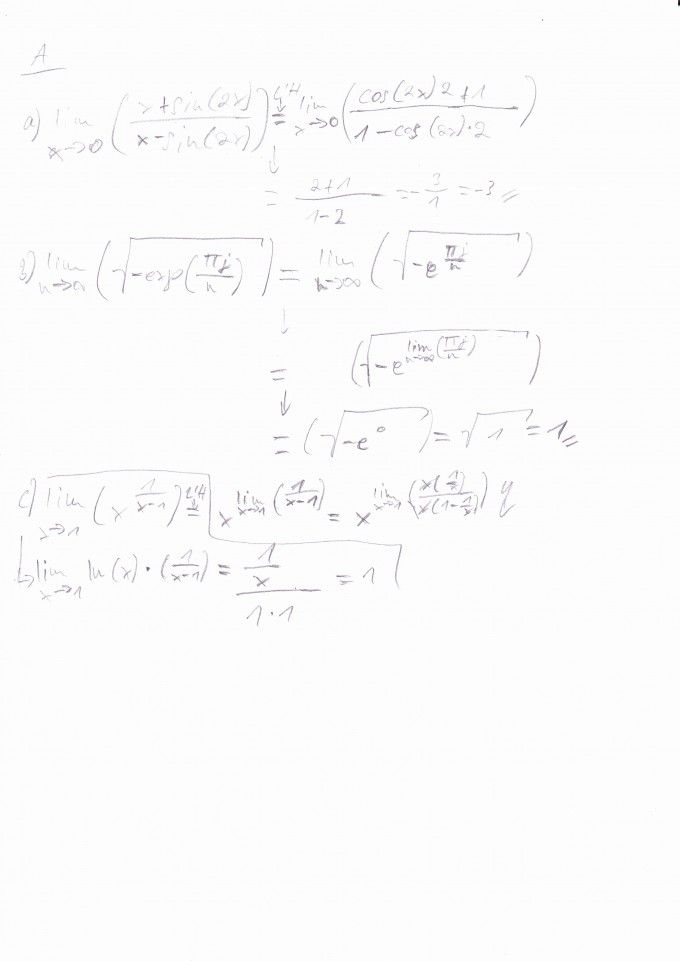 A
a) lim x→0 (x+sin(2x) / x-sin(2x)) L'H = lim x→0 (cos(2x)2+1 / 1-cos(2x)·2)
= 2+1 / 1-2 = -3/1 = -3
b) lim n→∞ (√-exp(πj/n)) = lim n→∞ (√-e^(πj/n))
= (√-e^(lim n→∞ (πj/n)))
= (√-e^0) = √1 = 1
c) lim x→1 (x^(1/x-1)) L'H = x^(lim x→1 (1/x-1)) = x^(lim x→1 (x(1/x) / x(1-1/x)))
↳ lim x→1 ln(x)·(1/x-1) = 1/x / 1·1 = 1